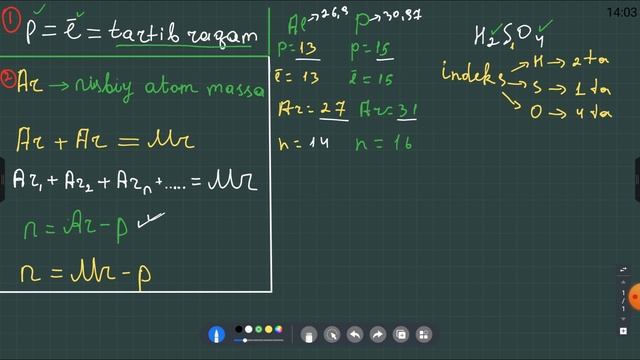 ① p = ē = tartib raqam
② Ar → nisbiy atom massa
Ar + Ar = Mr
Ar₁ + Ar₂ + Arₙ + ..... = Mr
n = Ar - p
n = Mr - p
Al → 26,9
p = 13
ē = 13
Ar = 27
n = 14
P → 30,97
p = 15
ē = 15
Ar = 31
n = 16
H₂S₁O₄
indeks → H → 2 ta
→ S → 1 ta
→ O → 4 ta
14:03
1/1